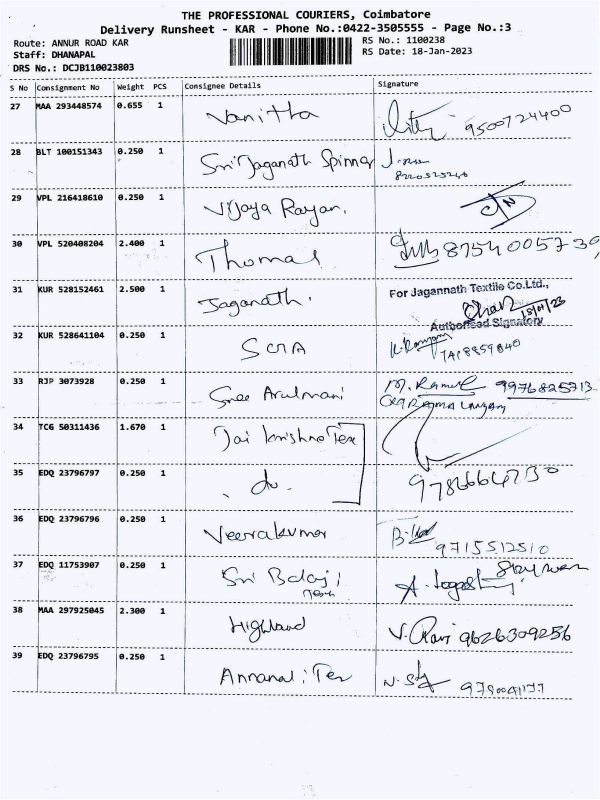 THE PROFESSIONAL COURIERS, Coimbatore
Delivery Runsheet - KAR - Phone No.:0422-3505555 - Page No.:3
Route: ANNUR ROAD KAR
RS No.: 1100238
Staff: DHANAPAL
RS Date: 18-Jan-2023
DRS No.: DCJB110023803
S No Consignment No Weight PCS Consignee Details Signature
27 MAA 293448574 0.655 1 Vanitha 9500724400
28 BLT 100151343 0.250 1 Sri Jaganath Spinner
29 VPL 216418610 0.250 1 Vijaya Rayan.
30 VPL 520408204 2.400 1 Thomas 8754005739
31 KUR 528152461 2.500 1 Jaganath.
For Jagannath Textile Co.Ltd.,
Authorised Signatory
32 KUR 528641104 0.250 1
33 RJP 3073928 0.250 1 Sree Arulmani 9976825713
34 TCG 50311436 1.670 1 Jai Krishna Tex
35 EDQ 23796797 0.250 1 do.
36 EDQ 23796796 0.250 1 Veerakumar 9715512510
37 EDQ 11753907 0.250 1 Sri Balaji
38 MAA 297925045 2.300 1 Highland V. Ravi 9626309256
39 EDQ 23796795 0.250 1 Annamalai Tex